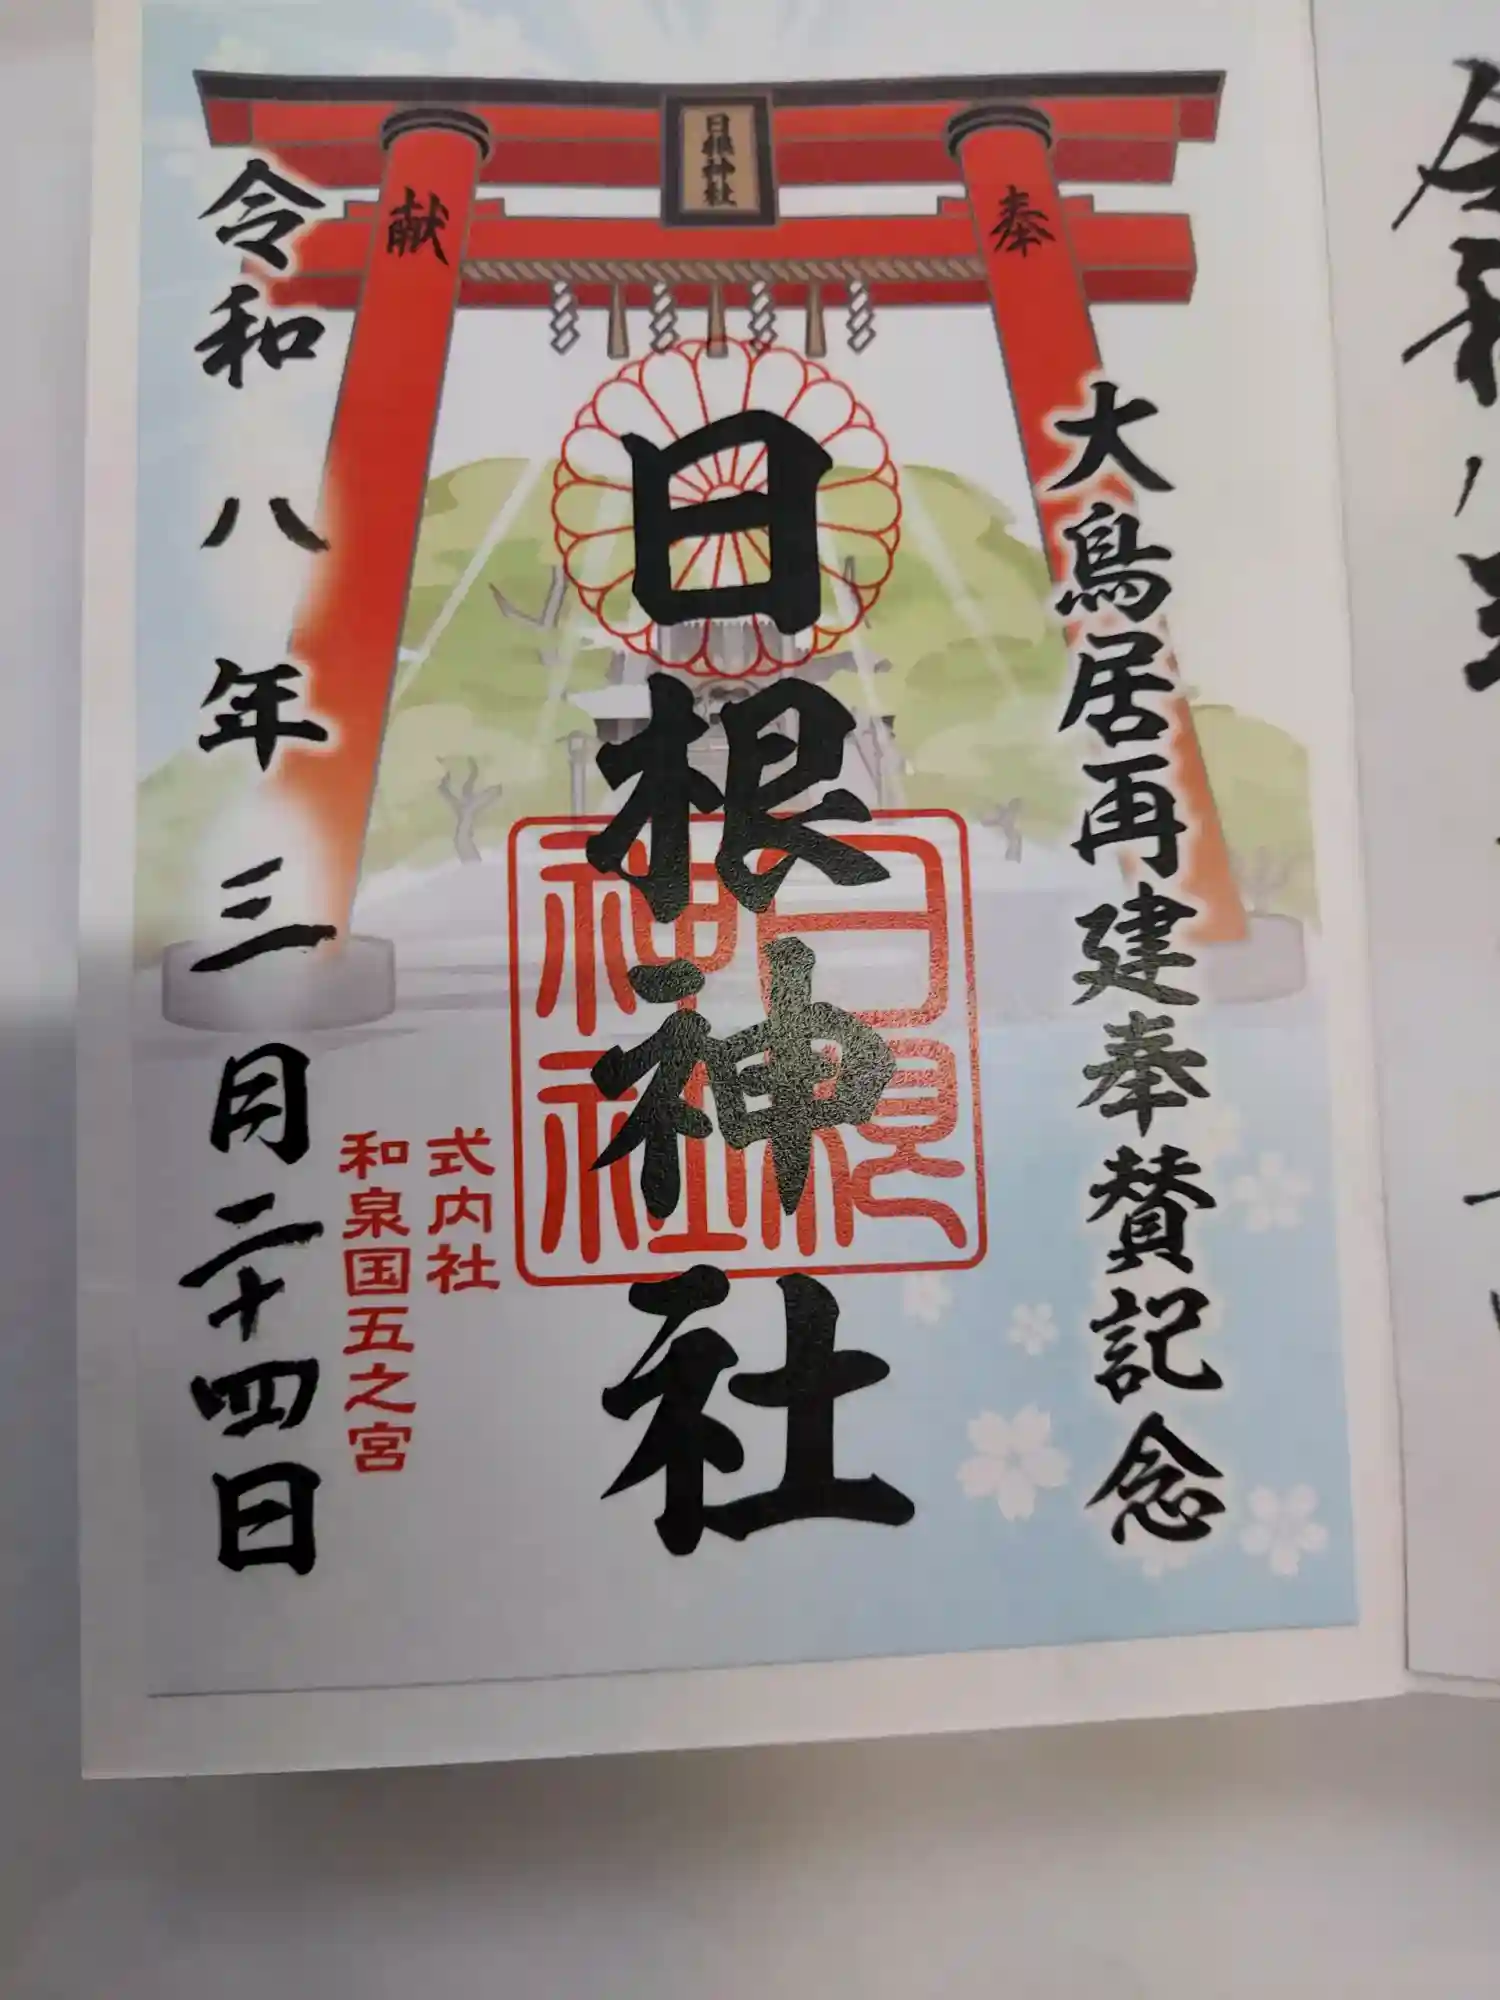 日根神社
奉
献
大鳥居再建奉賛記念
日根神社
日根
神社
式内社
和泉国五之宮
令和八年三月二十四日